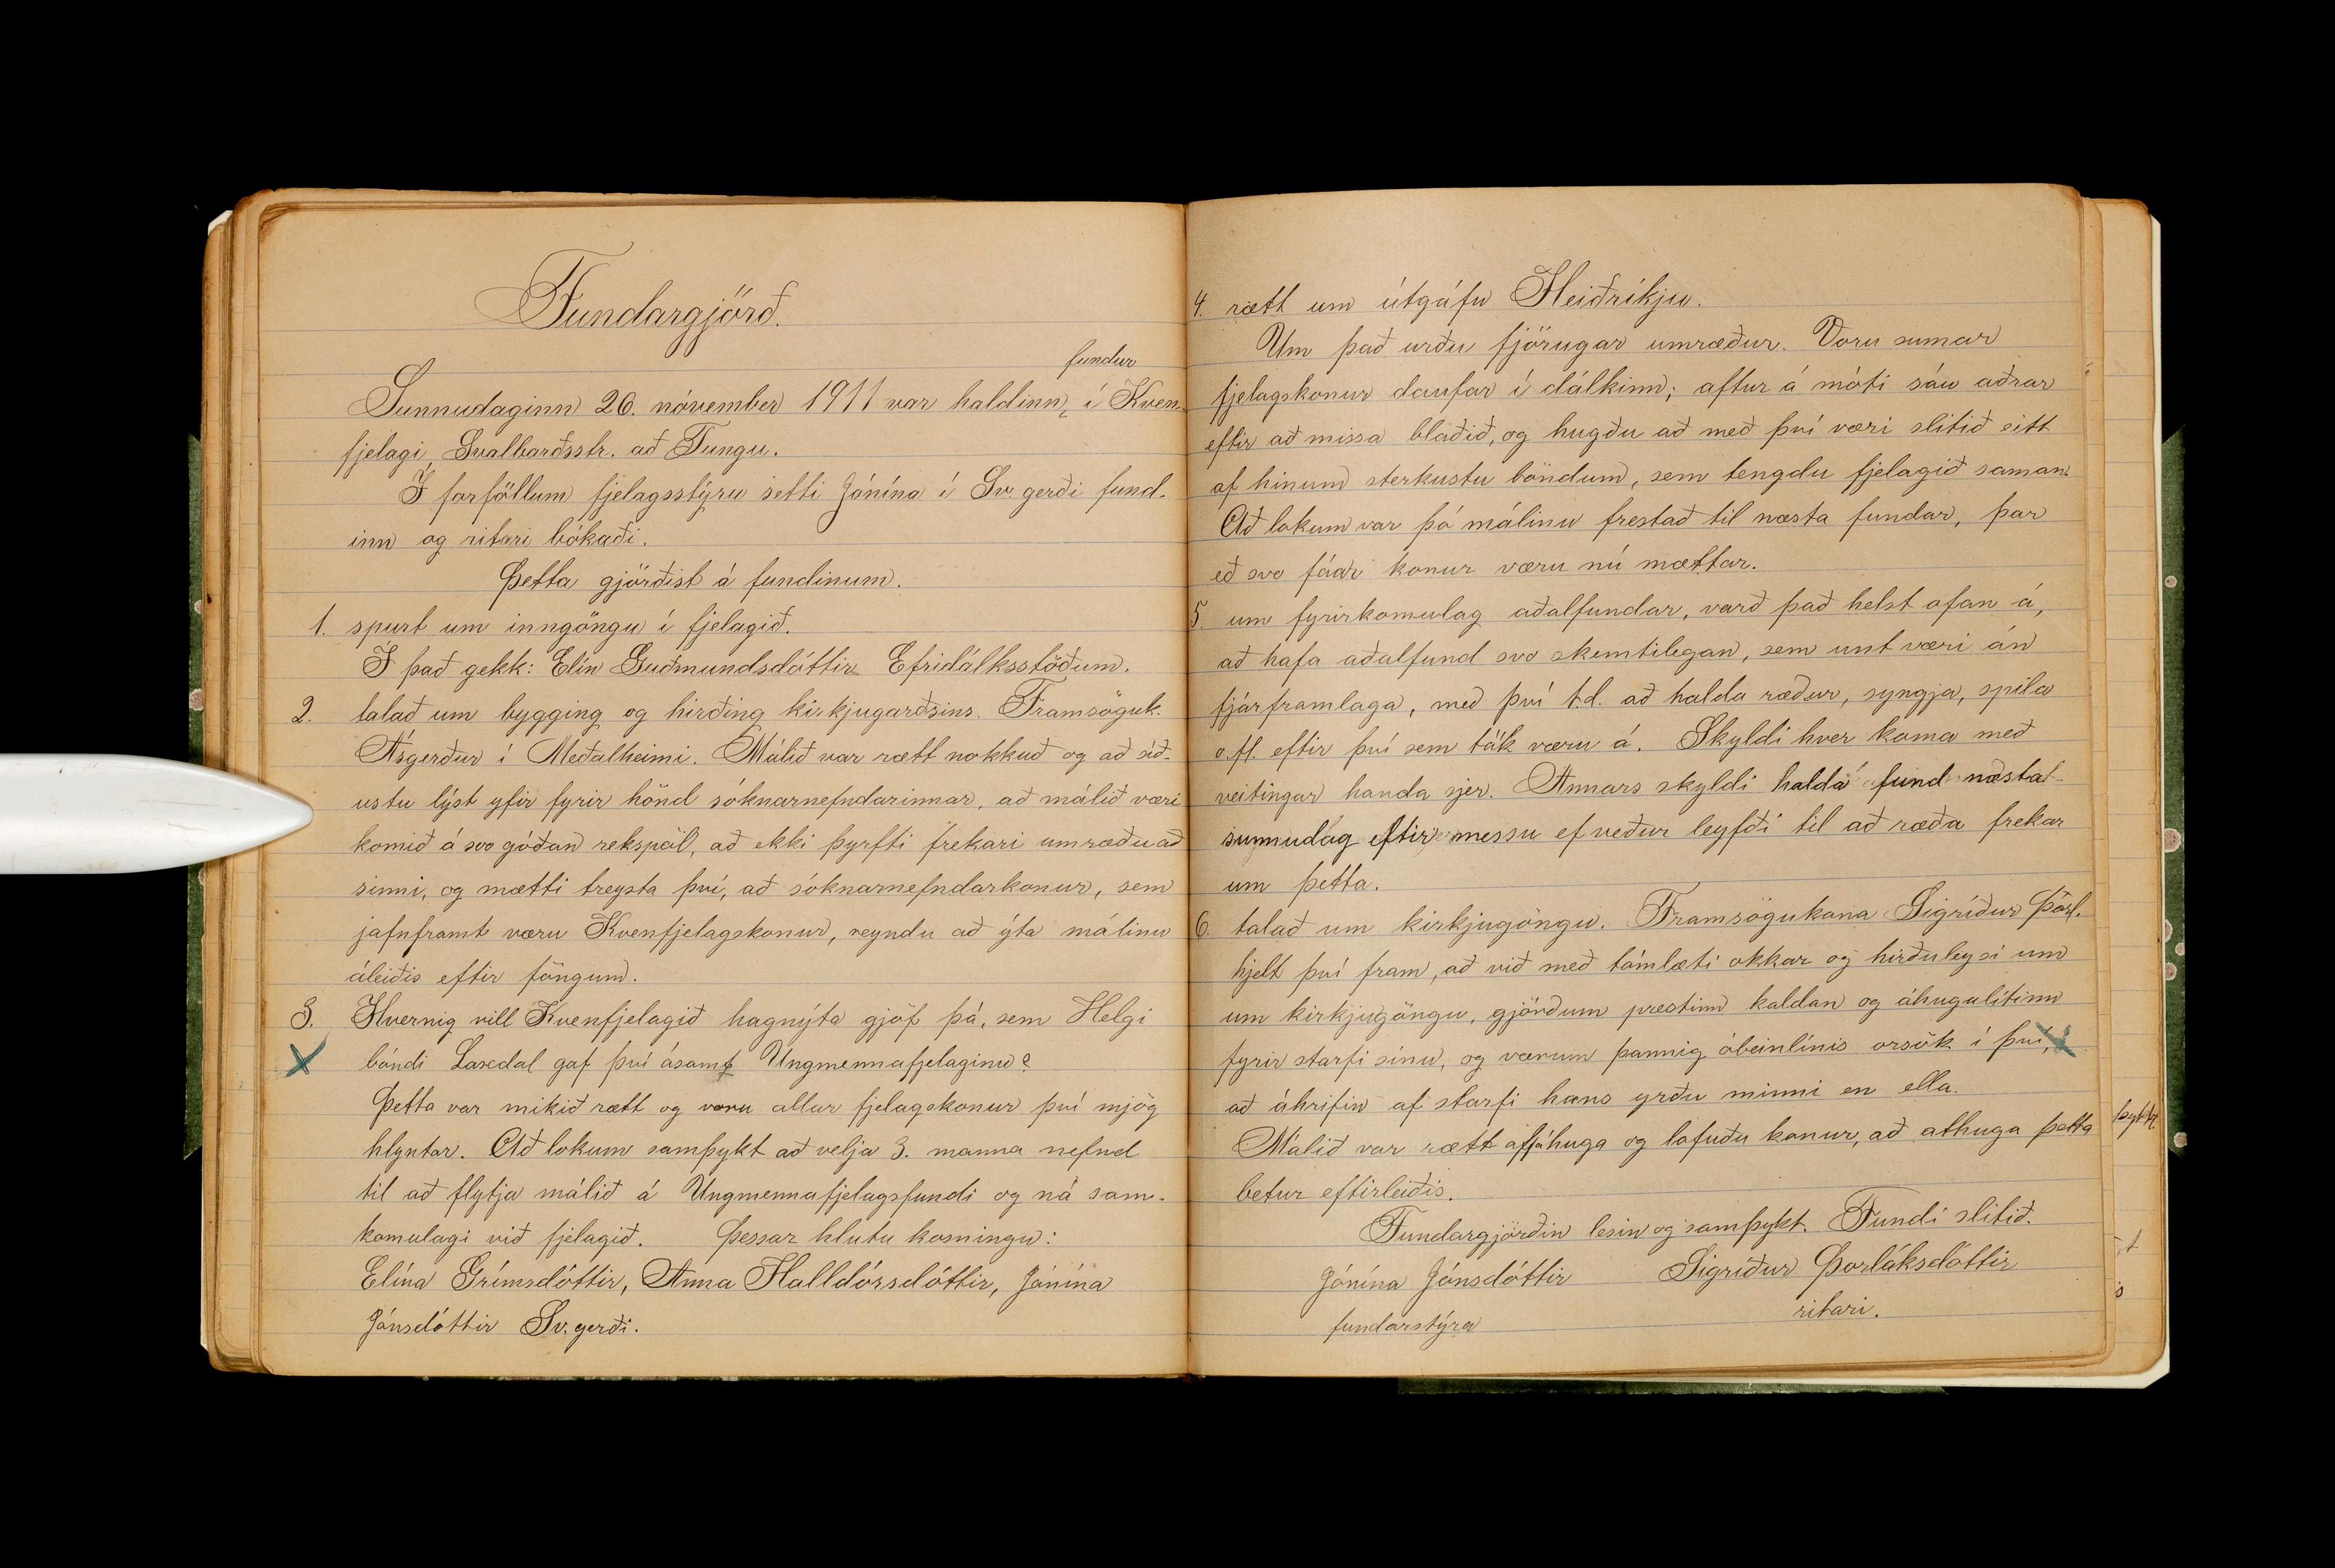 Fundargjörð.
fundur
Sunnudaginn 26. nóvember 1911 var haldinn, í Kven-
fjelagi Svalbarðsstr. að Tungu.
Í forföllum fjelagsstýru setti Jónína í Sv. gerði fund-
inn og ritari bókaði.
Þetta gjörðist á fundinum.
1. spurt um inngöngu í fjelagið.
Í það gekk: Elín Guðmundsdóttir Efridálksstöðum.
2. talað um bygging og hirðing kirkjugarðsins. Framsöguk.
Ásgerður í Meðalheimi. Málið var rætt nokkuð og að síð-
ustu lýst yfir fyrir hönd sóknarnefndarinnar, að málið væri
komið á svo góðan rekspöl, að ekki þyrfti frekari umræðu að
sinni, og mætti treysta því, að sóknarnefndarkonur, sem
jafnframt væru Kvenfjelagskonur, reyndu að ýta málinu
áleiðis eftir föngum.
3. Hvernig vill Kvenfjelagið hagnýta gjöf þá, sem Helgi
bóndi Laxdal gaf því ásamt Ungmennafjelaginu?
Þetta var mikið rætt og voru allar fjelagskonur því mjög
hlyntar. Að lokum samþykt að velja 3. manna nefnd
til að flytja málið á Ungmennafjelagsfundi og ná sam-
komulagi við fjelagið. Þessar hlutu kosningu:
Elína Grímsdóttir, Anna Halldórsdóttir, Jónína
Jónsdóttir Sv. gerði.
4. rætt um útgáfu Heiðríkju.
Um það urðu fjörugar umræður. Voru sumar
fjelagskonur daufar í dálkinn; aftur á móti sáu aðrar
eftir að missa blaðið, og hugðu að með því væri slitið eitt
af hinum sterkustu böndum, sem tengdu fjelagið saman.
Að lokum var þó málinu frestað til næsta fundar, þar
eð svo fáar konur væru nú mættar.
5. um fyrirkomulag aðalfundar, varð það helst ofan á,
að hafa aðalfund svo skemtilegan, sem unt væri án
fjárframlaga, með því t.d. að halda ræður, syngja, spila
o.fl. eftir því sem tök væru á. Skyldi hver koma með
veitingar handa sjer. Annars skyldi halda fund næsta
sunnudag eftir messu ef veður leyfði til að ræða frekar
um þetta.
6. talað um kirkjugöngu. Framsögukona Sigríður Þorl.
hjelt því fram, að við með tómlæti okkar og hirðuleysi um
um kirkjugöngu, gjörðum prestinn kaldan og áhugalítinn
fyrir starfi sínu, og værum þannig óbeinlínis orsök í því,
að áhrifin af starfi hans yrðu minni en ella.
Málið var rætt af áhuga og lofuðu konur, að athuga þetta
betur eftirleiðis.
Fundargjörðin lesin og samþykt. Fundi slitið.
Jónína Jónsdóttir Sigríður Þorláksdóttir
fundarstýra ritari.